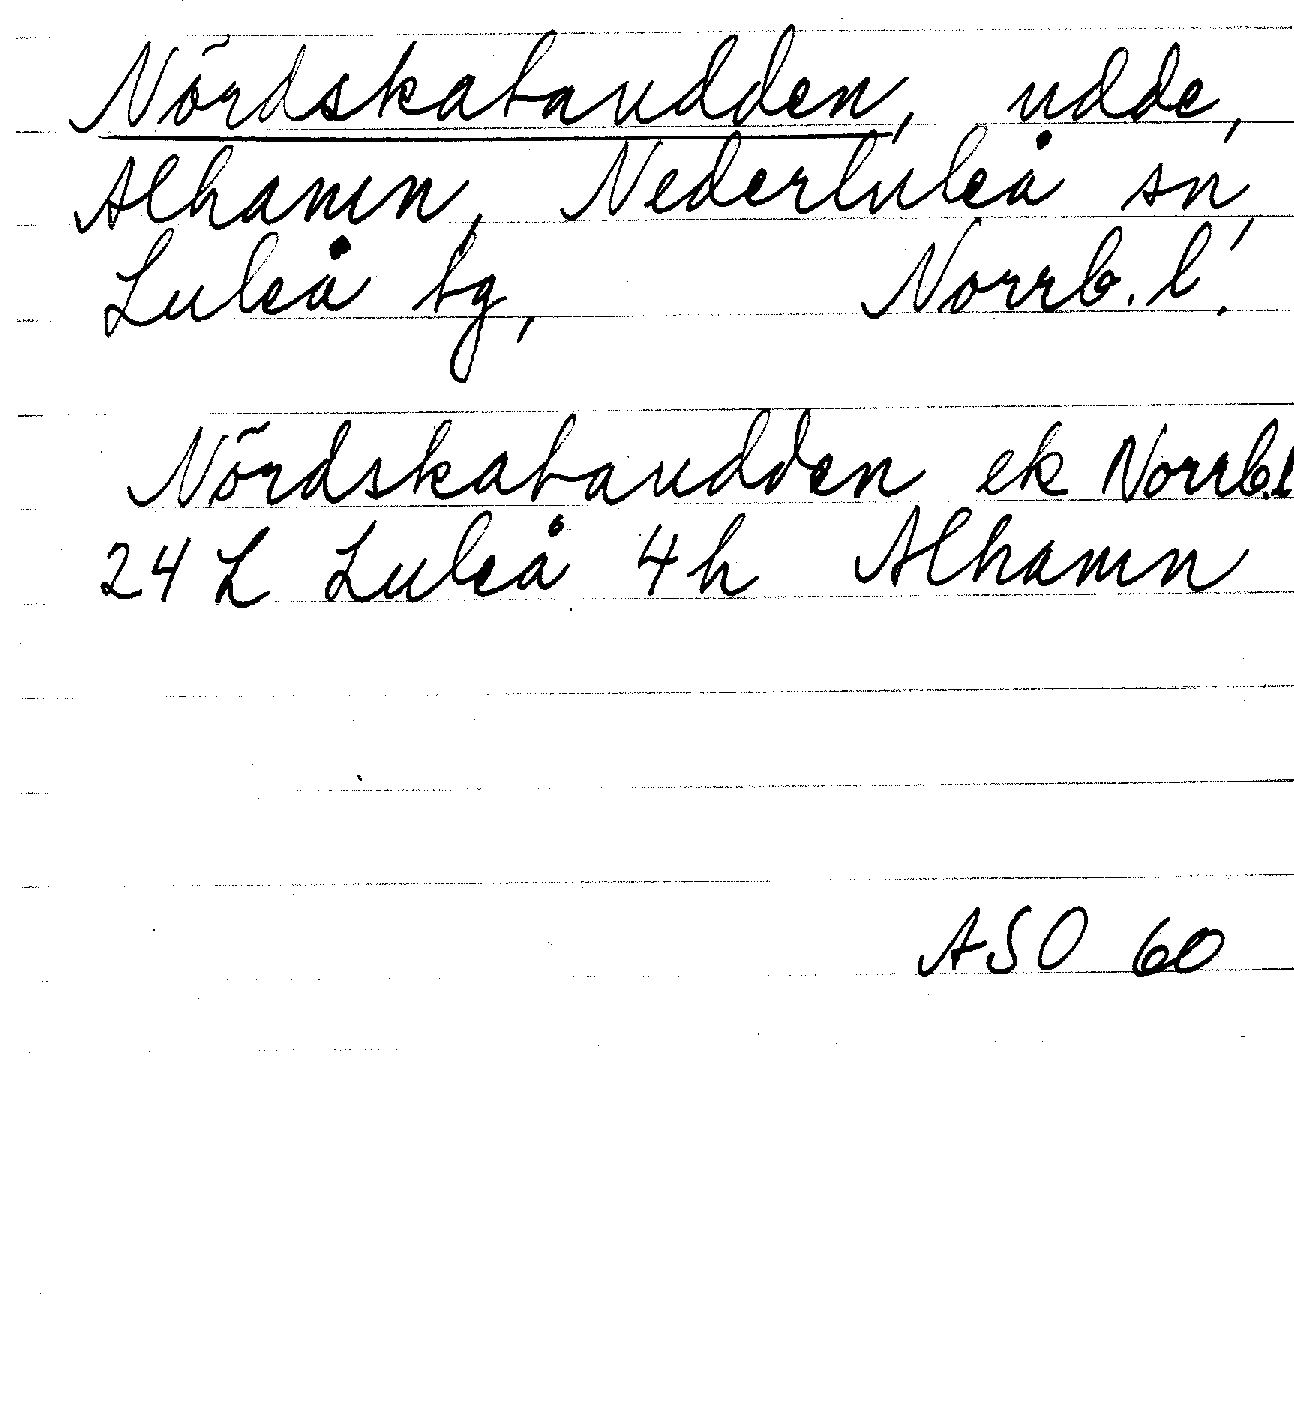 Nördskataudden, udde,
Alhamn, Nederluleå sn,
Luleå tg, Norrb. l.
Nördskataudden ek Norrb.l
24 L Luleå 4 h Alhamn
ASO 60